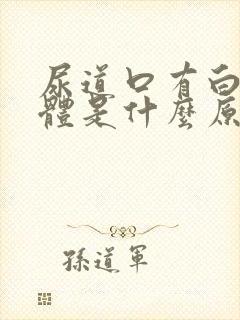 尿道口有白
體是什麼原
孫道軍